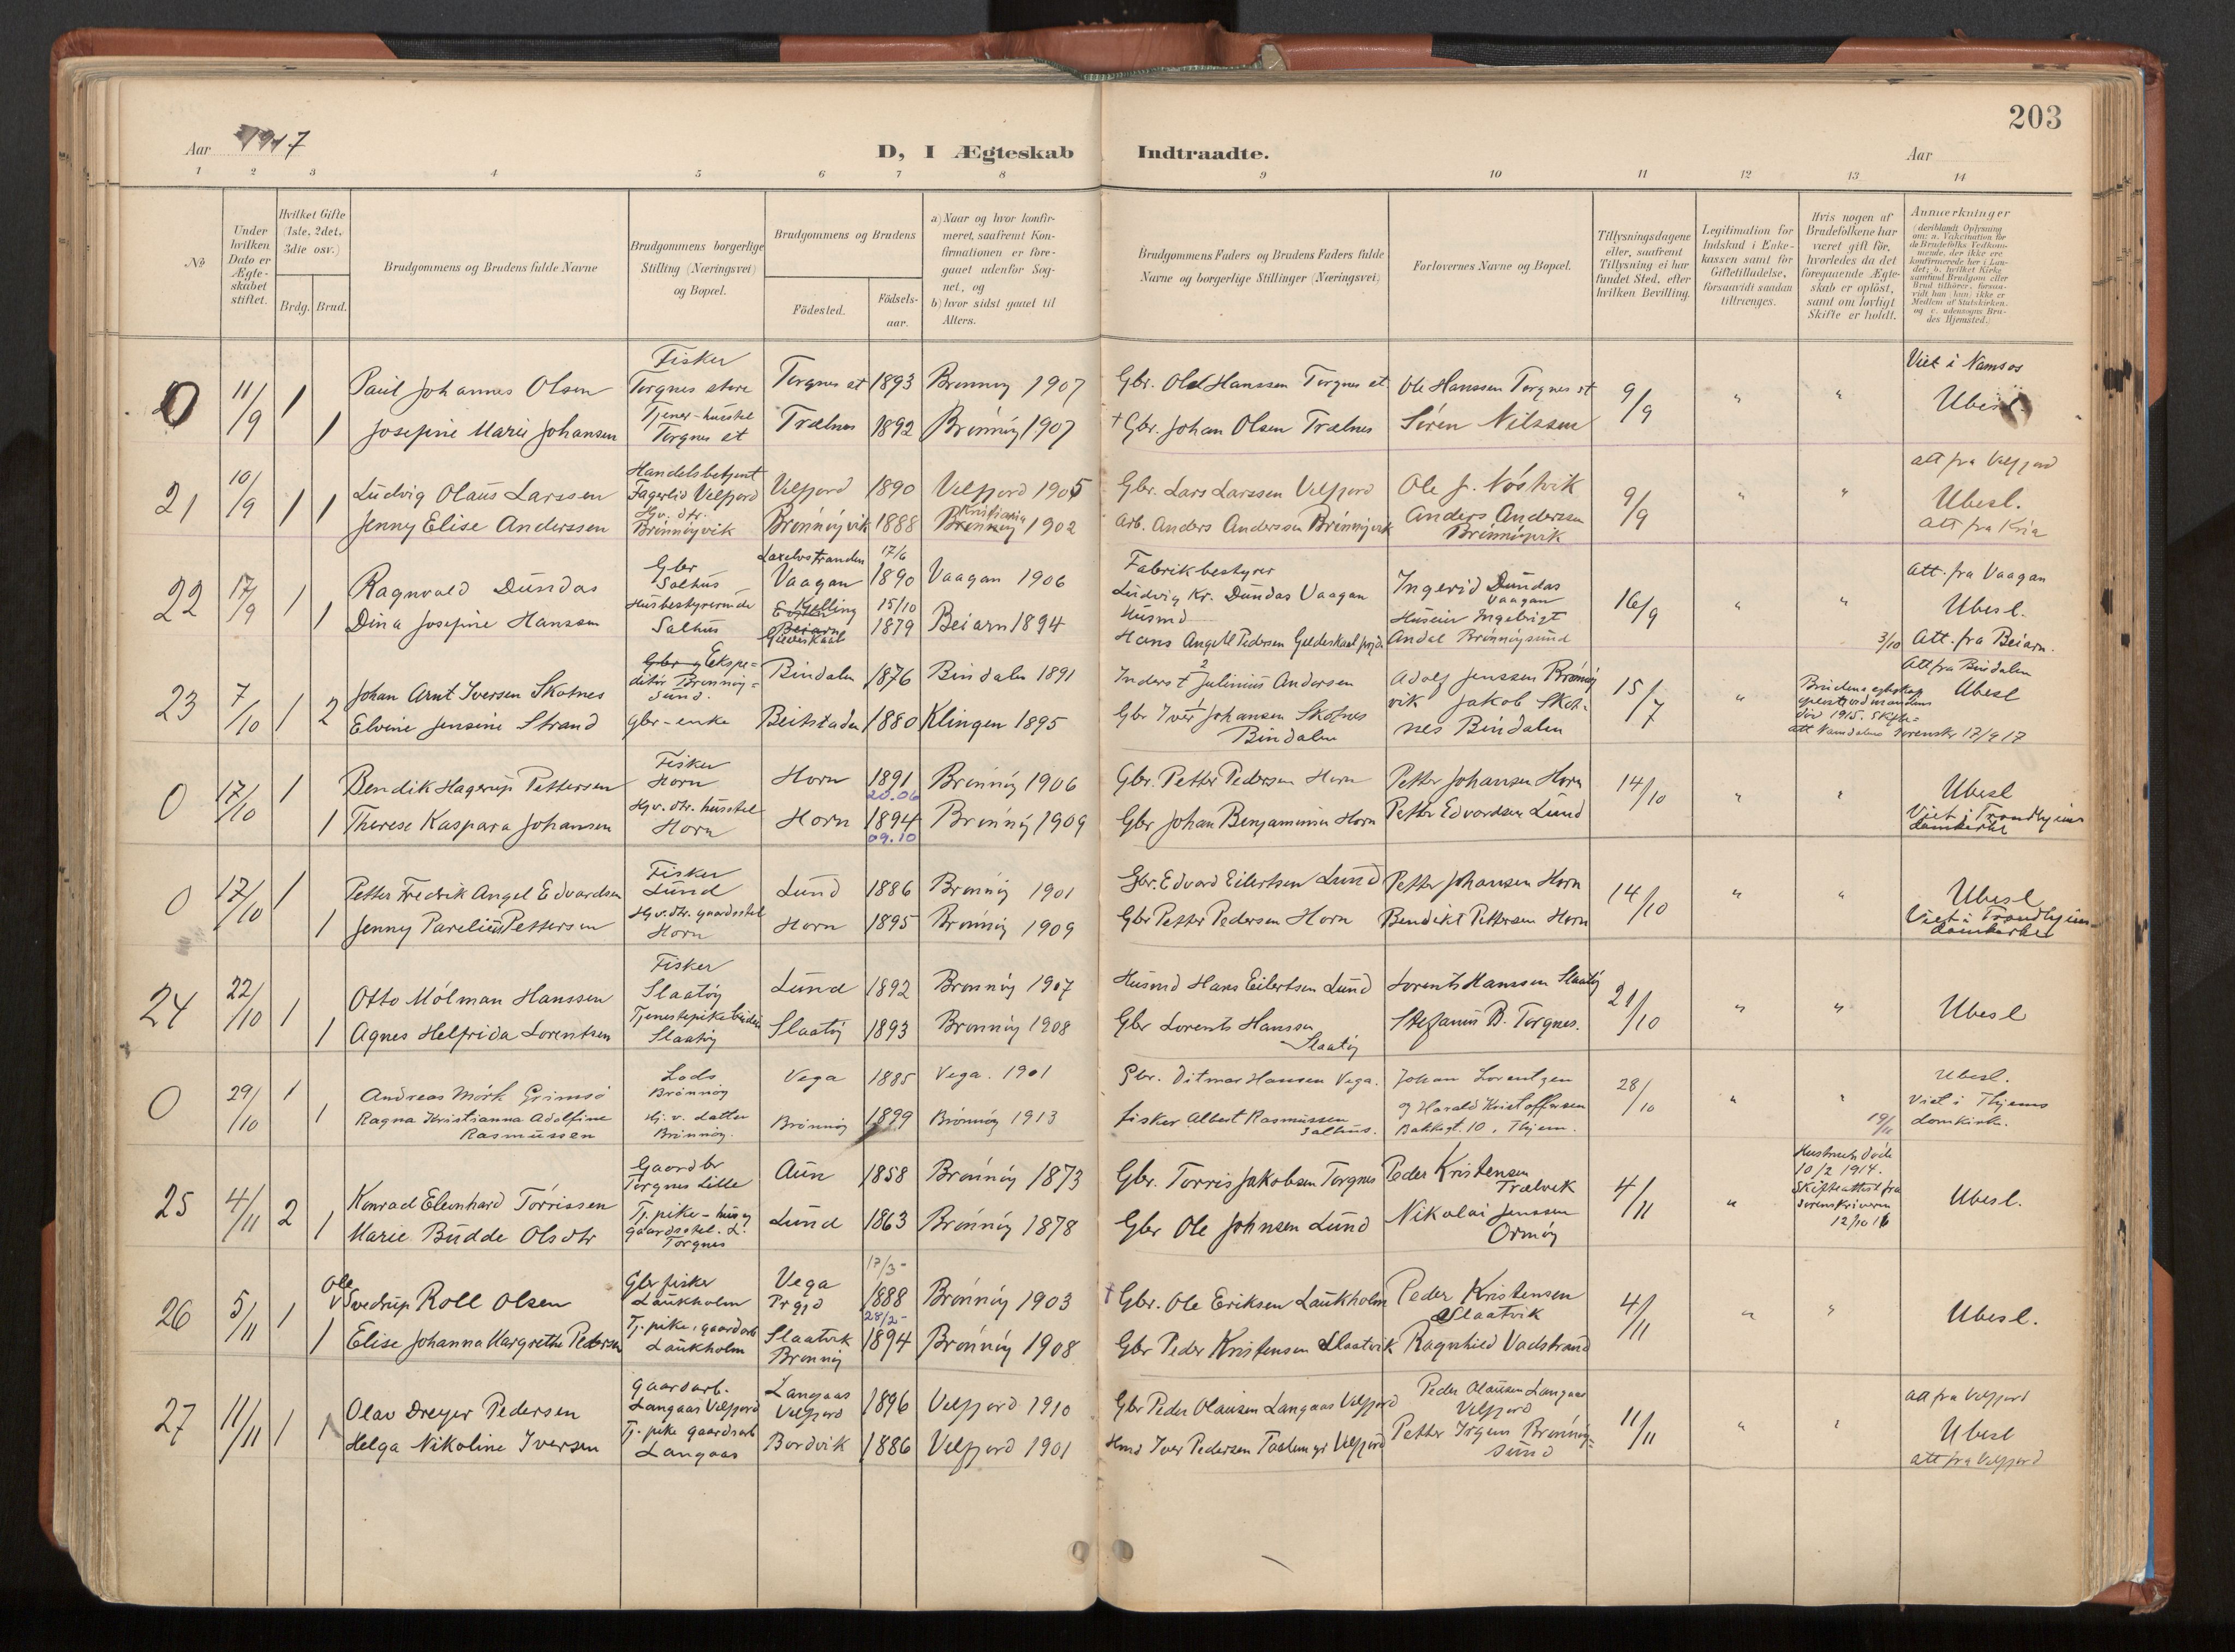 203
Aar 1917
D, I Ægteskab Indtraadte.
Aar
1 2 3 4 5 6 7 8 9 10 11 12 13 14
No
Under hvilken Dato er Ægteskabet stiftet.
Hvilket Gifte (1ste, 2det, 3die osv.)
Brdg. Brud.
Brudgommens og Brudens fulde Navne
Brudgommens borgerlige Stilling (Næringsvei) og Bopæl.
Brudgommens og Brudens
Födested.
Födsels-aar.
a) Naar og hvor konfirmeret, saafremt Konfirmationen er foregaaet udenfor Sognet, og
b) hvor sidst gaaet til Alters.
Brudgommens Faders og Brudens Faders fulde Navne og borgerlige Stillinger (Næringsvei)
Forlovernes Navne og Bopæl.
Tillysningsdagene eller, saafremt Tillysning ei har fundet Sted, efter hvilken Bevilling.
Legitimation for Indskud i Enkekassen samt for Giftetilladelse, forsaavidt saadan tiltrænges.
Hvis nogen af Brudefolkene har været gift för, hvorledes da det foregaaende Ægteskab er oplöst, samt om lovligt Skifte er holdt.
Anmærkninger
(deriblandt Oplysning om: a. Vakcination for de Brudefolks Vedkommende, der ikke ere konfirmerede her i Landet; b. hvilket Kirkesamfund Brudgom eller Brud tilhörer, forsaavidt han (hun) ikke er Medlem af Statskirken, og c. udensogns Brudes Hjemsted.)
0 11/9 1 Paul Johannes Olsen Fisker Torgnes store Torgnes st 1893 Brønnøy 1907 Gbr. Ole Hanssen Torgnes st. Ole Hanssen Torgnes st 9/9 " " Viet i Namsos
1 Josefine Marie Johansen Tjener-husstel Torgnes st Trælnes 1892 Brønnøy 1907 + Gbr. Johan Olsen Trælnes Søren Nilssen Ubesl.
21 10/9 1 1 Ludvig Olaus Larssen Handelsbetjent Fagerlid Velfjord Velfjord 1890 Velfjord 1905 Gbr. Lars Larssen Velfjord Ole J. Nøstvik 9/9 " " att fra Velfjord Ubesl.
Jenny Elise Anderssen Hjv. dtr. Brønnøyvik Brønnøyvik 1888 Kristiania Brønnøy 1902 Arb. Anders Andersen Brønnøyvik Anders Anderssen Brønnøyvik att fra Kria
22 17/9 1 Ragnvald Dundas Gbr Salhus Laxelvstranden Vaagan 17/6 1890 Vaagan 1906 Fabrikbestyrer Ludvig Kr. Dundas Vaagan Ingerid Dundas Vaagan 16/9 " " att. fra Vaagan Ubesl.
1 Dina Josefine Hanssen Husbestyrerinde Salhus Kjelling Beiarn Gildeskaal 15/10 1879 Beiarn 1894 Husmd Hans Angell Pedersen Gildeskaal Ingebrigt Andal Brønnøysund 3/10 Att. fra Beiarn.
23 7/10 1 2 Johan Arnt Iversen Skotnes Gbr og Ekspeditør Brønnøysund. Bindalen 1876 Bindalen 1891 Inderst 2 Julinius Andersen Adolf Jenssen Brønnøyvik 15/7 " Brudens egteskap opløst ved mandens død 1915. Skifteatt Namdalens Sorenskr 17/9 17 Att fra Bindalen Ubesl
Elvine Jensine Strand gbr-enke Beitstaden 1880 Klingen 1895 Gbr 1 Iver Johansen Skotnes Bindalen Jakob Skotnes Bindalen
0 17/10 1 Bendik Hagerup Pettersen Fisker Horn Horn 1891 20.06 Brønnøy 1906 Gbr. Petter Pedersen Horn Petter Johansen Horn 14/10 " " Ubesl
1 Therese Kaspara Johansen Hjv. dtr. husstel Horn Horn 1894 09.10 Brønnøy 1909 Gbr Johan Benjaminsen Horn Petter Edvardsen Lund Viet i Trondhjems domkirke
0 17/10 1 Petter Fredrik Angel Edvardsen Fisker Lund Lund 1886 Brønnøy 1901 Gbr. Edvard Eilertsen Lund Petter Johansen Horn 14/10 " " Ubesl
1 Jenny Pareliusd. Pettersen Hjv. dtr. gaardsstel Horn Horn 1895 Brønnøy 1909 Gbr Petter Pedersen Horn Bendikt Pettersen Horn Viet i Trondhjems domkirke
24 22/10 1 Otto Mölman Hanssen Fisker Slaatøy Lund 1892 Brønnøy 1907 Husmd Hans Eilertsen Lund Lorents Hanssen Slaatøy 21/10 " " Ubesl
1 Agnes Helfrida Lorentsen Tjenestepike Slaatøy Slaatøy 1893 Brønnøy 1908 Gbr Lorents Hanssen Slaatøy Stefanus B. Torgnes.
0 29/10 1 Andreas Mörk Grimsö Lods Brønnøy Vega 1885 Vega. 1901 Gbr. Ditmar Hansen Vega. Johan Lorentzen 28/10 " " Ubesl.
1 Ragna Kristianna Adolfine Rasmussen Hj. v. datter Brønnøy. Brønnøy 1899 Brønnøy 1913 fisker Albert Rasmussen Salhus. og Harald Kristoffersen Bakkegt. 10, Thjem. 19/11 Viet i Thjems domkirke.
25 4/11 2 Konrad Elenhard Torrissen Gaardbr Torgnes Lille Aun 1858 Brønnøy 1873 Gbr. Torris Jakobsen Torgnes Peder Kristensen Trælvik 4/11 " Hustruen døde 10/2 1914. Skifteattest fra Sorenskriveren 12/10 16 Ubesl.
1 Marie Budde Olsdtr Tj. pike - hus og gaardsstel. L. Torgnes Lund 1863 Brønnøy 1878 Gbr Ole Johnsen Lund Nikolai Jenssen Ormøy
26 5/11 1 Ole Svedrup Roll Olsen Gbr fisker Laukholm Vega Prgjd 17/3 1888 Brønnøy 1903 + Gbr. Ole Eriksen Laukholm Peder Kristensen Slaatvik 4/11 " " Ubesl.
1 Elise Johanna Margrethe Pedersen Tj. pike, gaardarb Laukholm Slaatvik Brønnøy 28/2 1894 Brønnøy 1908 Gbr Peder Kristensen Slaatvik Ragnhild Vadstrand
27 11/11 1 1 Olav Dreyer Pedersen gaardsarb. Langaas Velfjord Langaas Velfjord 1896 Velfjord 1910 Gbr Peder Olausen Langaas Velfjord Peder Olausen Langaas Velfjord 11/11 " " att fra Velfjord Ubesl
Helga Nikoline Iversen Tj. pike gaardsarb Langaas Bordvik 1886 Velfjord 1901 Hmd Iver Pedersen Velfjord Petter Irgens Brønnøysund att fra Velfjord